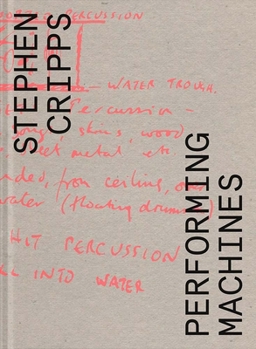 STEPHEN
CRIPPS
PERFORMING
MACHINES
PERCUSSION
WATER TROUGH.
Percussion -
skins, wood
metal etc
from ceiling, over
water (floating drums)
HIT PERCUSSION
INTO WATER